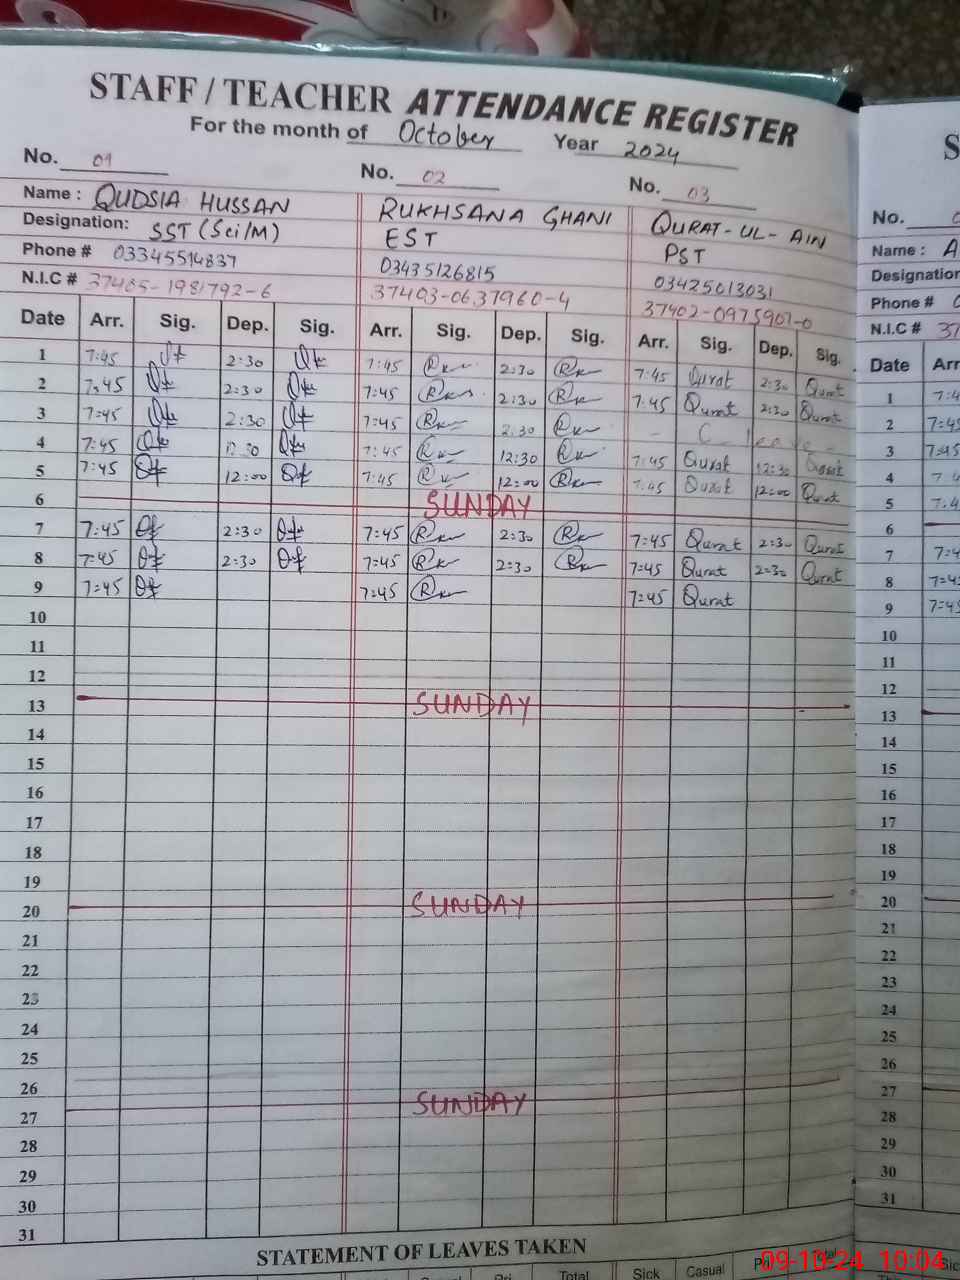 STAFF / TEACHER ATTENDANCE REGISTER
For the month of October Year 2024
No. 01 No. 02 No. 03
Name : QUDSIA HUSSAN RUKHSANA GHANI QURAT-UL-AIN
Designation: SST (Sci/M) EST PST
Phone # 03345514837 03435126815 03425013031
N.I.C # 37405-1981792-6 37403-0637960-4 37402-0975907-0
Date Arr. Sig. Dep. Sig. Arr. Sig. Dep. Sig. Arr. Sig. Dep. Sig.
1 7:45 2:30 7:45 2:30 7:45 Qurat 2:30 Qurat
2 7:45 2:30 7:45 2:30 7:45 Qurat 2:30 Qurat
3 7:45 2:30 7:45 2:30 - C. leave -
4 7:45 12:30 7:45 12:30 7:45 Qurat 12:30 Qurat
5 7:45 12:00 7:45 12:00 7:45 Qurat 12:00 Qurat
6 SUNDAY
7 7:45 2:30 7:45 2:30 7:45 Qurat 2:30 Qurat
8 7:45 2:30 7:45 2:30 7:45 Qurat 2:30 Qurat
9 7:45 7:45 7:45 Qurat
10
11
12
13 SUNDAY
14
15
16
17
18
19
20 SUNDAY
21
22
23
24
25
26
27 SUNDAY
28
29
30
31
STATEMENT OF LEAVES TAKEN
Total Sick Casual Total
No.
Name : A
Designation
Phone # 0
N.I.C # 37
Date Arr
1 7:4
2 7:45
3 7:45
4 7:4
5 7:4
6
7 7:4
8 7:4
9 7:45
10
11
12
13
14
15
16
17
18
19
20
21
22
23
24
25
26
27
28
29
30
31
09-10-24 10:04